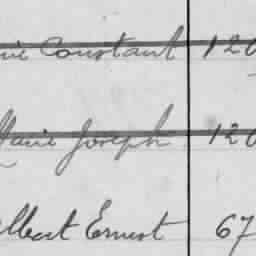 Constant 120
Marie Joseph 120
Albert Ernest 67